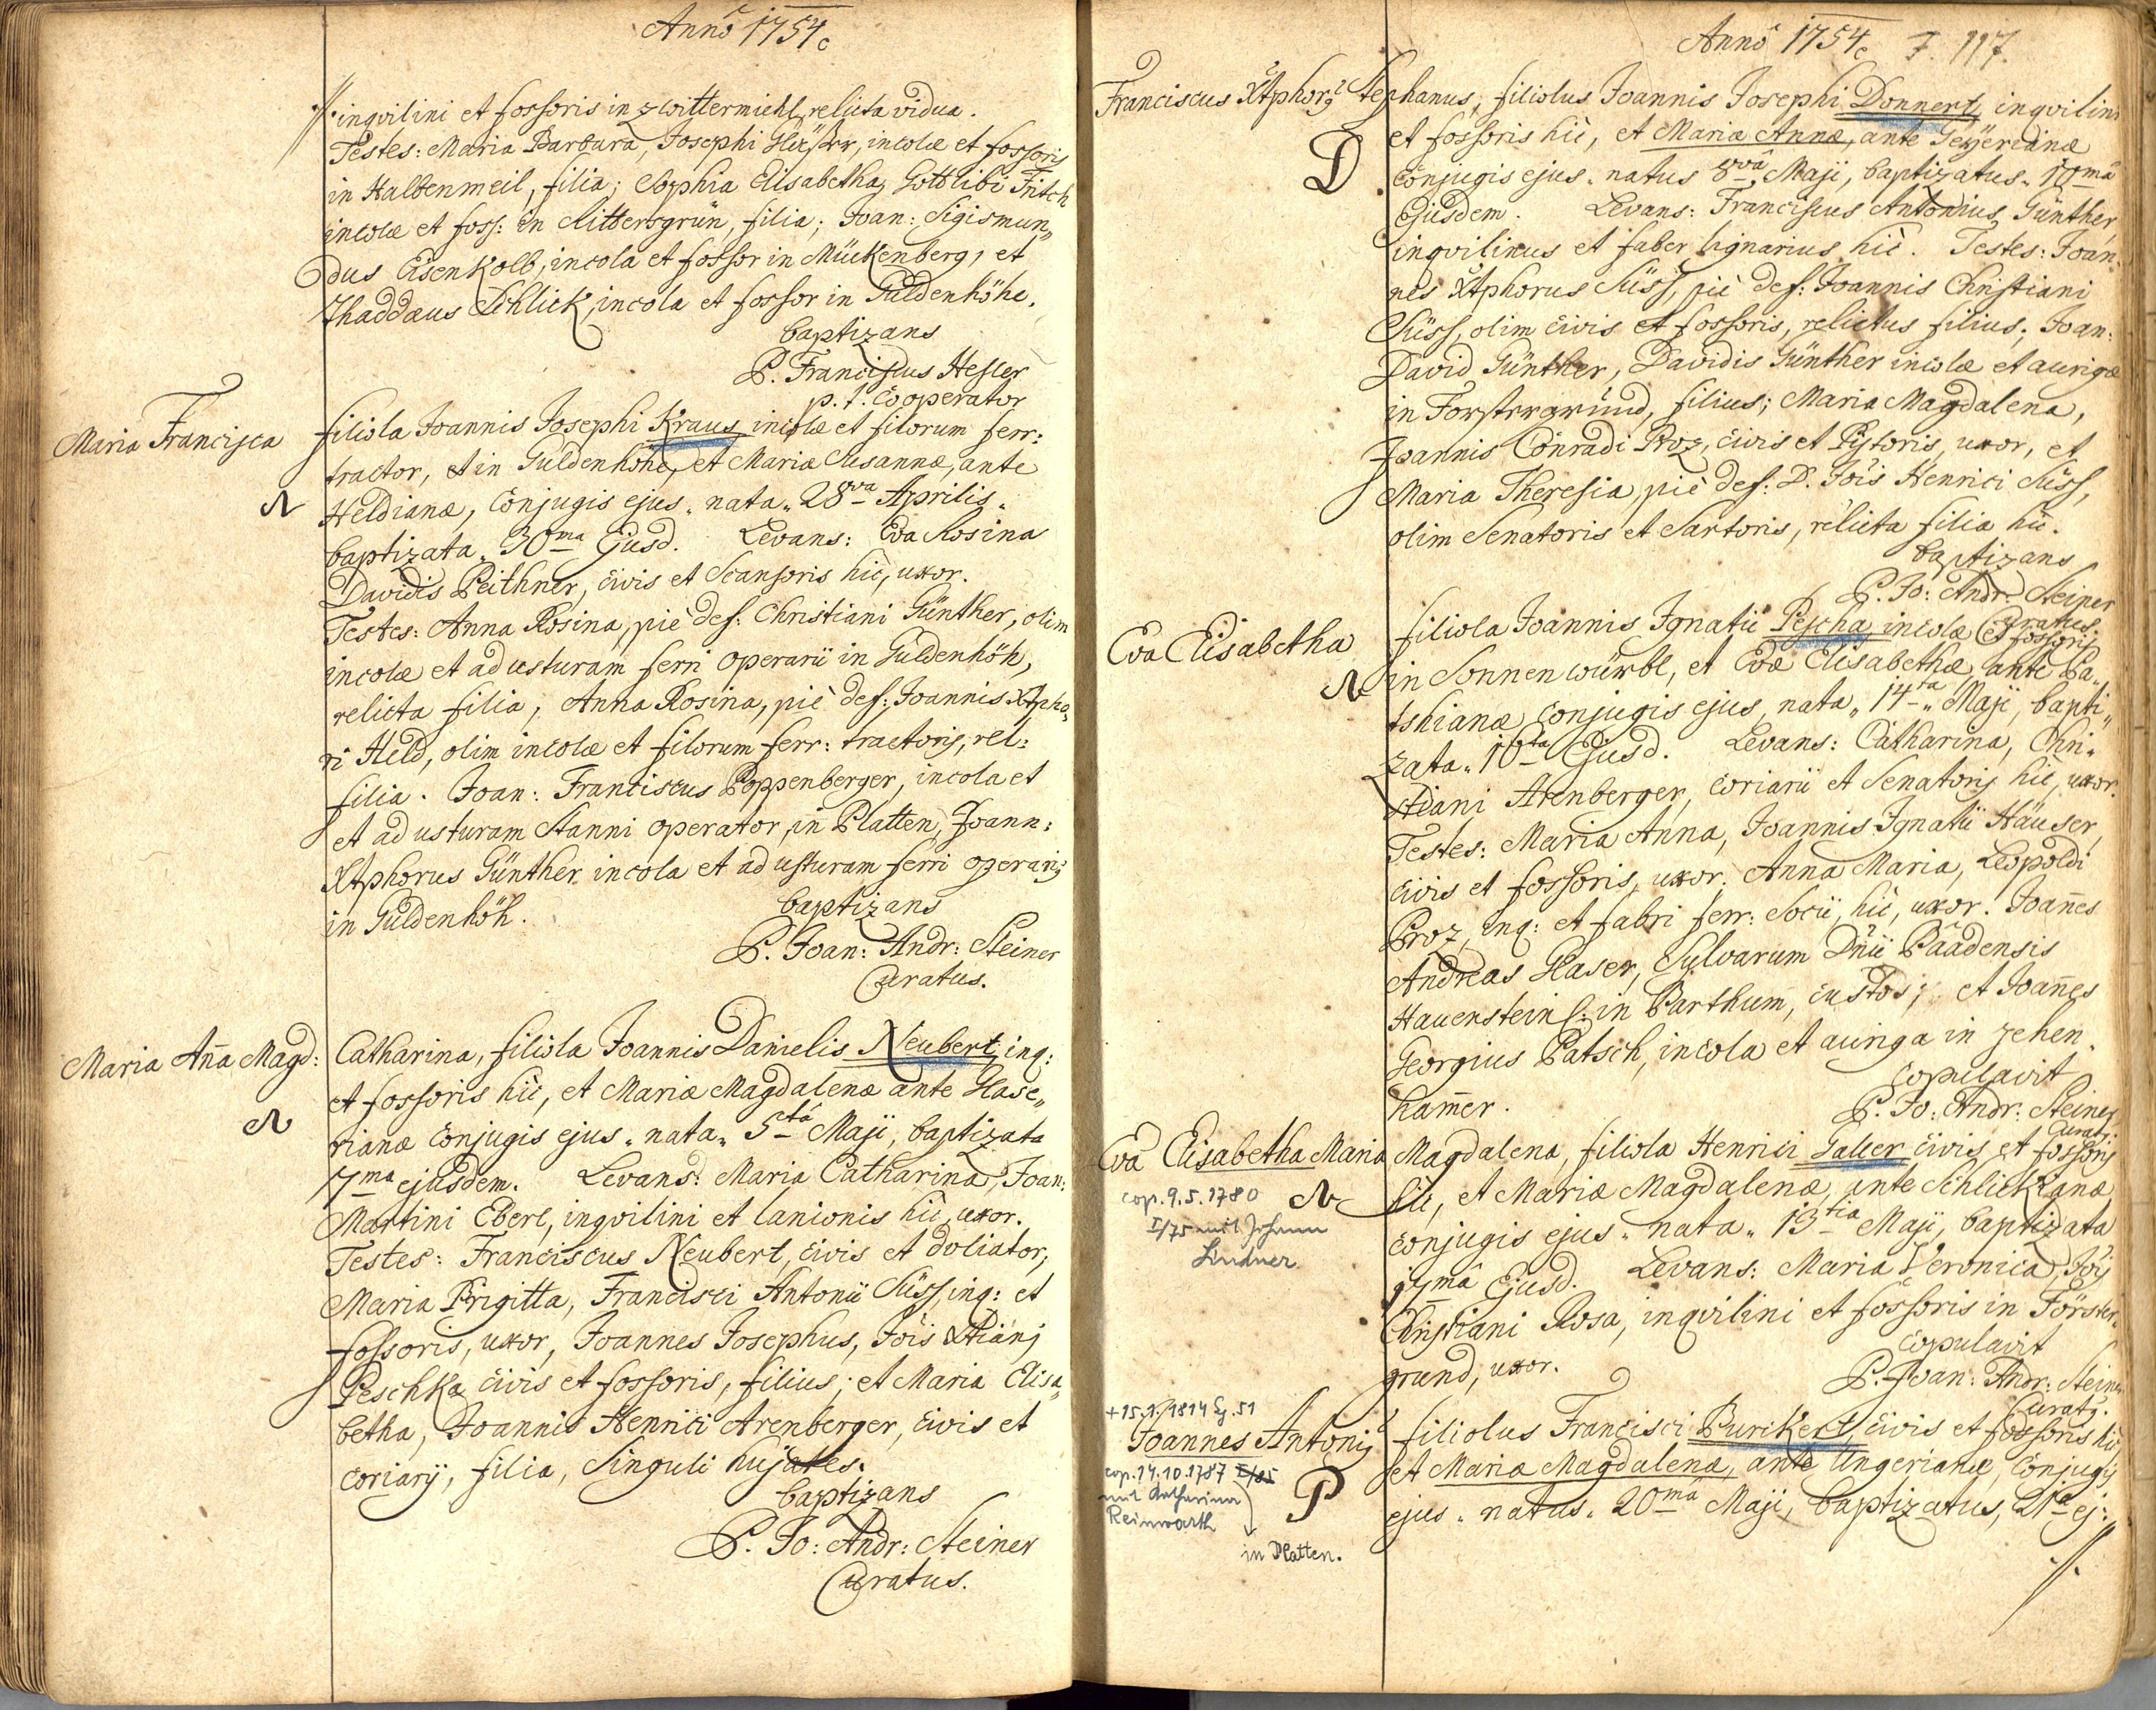 Anno 1754
inqvilini et fossoris in Zwittermiehl, relicta vidua.
Testes: Maria Barbara, Josephi incolæ et fossoris
in Halbenmeil, filia; Sophia Elisabetha, Gottlibi Fritsch
incolæ et foss: in Rittersgrün, filia; Joan: Sigismun„
dus Eisenkolb, incola et fossor in Mückenberg, et
Thaddæus Schlick, incola et fossor in Güldenhöhe.
baptizans
P. Franciscus Hessler
p. t. Cooperator
Maria Francisca filiola Joannis Josephi Kraus incolæ et filorum ferr:
tractor, et in Güldenhöhe, et Mariæ Susannæ, ante
N Heldianæ, Conjugis ejus. nata. 28va Aprilis.
baptizata. 30ma Ejusd. Levans: Eva Rosina
Davidis Peithner, civis et Scansoris hic, uxor.
Testes: Anna Rosina, piè def: Christiani Günther, olim
incolæ et ad usturam ferri operarii in Guldenhöh,
relicta filia, Anna Rosina, piè def: Joannis Xtpho„
ri Held, olim incolæ et filorum ferr: tractoris, rel:
filia. Joan: Franciscus Poppenberger, incola et
et ad usturam Stanni operator, in Platten, Joann:
Xtphorus Günther incola et ad usturam ferri operari9
in Guldenhöh. baptizans
P. Joan: Andr: Steiner
Curatus.
Maria Aña Magd: Catharina, filiola Joannis Danielis Neubert, inq:
et fossoris hic, et Mariæ Magdalenæ ante Hase„
N rianæ Conjugis ejus. nata. 5ta Maji, baptizata
7ma ejusdem. Levans: Maria Catharina, Joan:
Martini Eberl, inqvilini et lanionis hic, uxor.
Testes: Franciscus Neubert, civis et doliator,
Maria Brigitta, Francisci Antonii Süss, inq: et
fossoris, uxor, Joannes Josephus, Jois Xtiani
Peschka civis et fossoris, filius; et Maria Elisa„
betha, Joannis Henrici Arenberger, civis et
coriarij, filia, Singuli hujates.
baptizans
P. Jo: Andr: Steiner
Curatus.
Anno 1754 F. 117.
Franciscus Xtphor9 Stephanus, filiolus Joannis Josephi Donnert, inqvilini
et fossoris hic, et Mariæ Annæ, ante Geyerianæ
D Conjugis ejus. natus 8va Maji, baptizatus. 10ma
Ejusdem. Levans: Franciscus Antonius Günther
inqvilinus et faber lignarius hic. Testes: Joan„
nes Xtphorus Süss, piè def: Joannis Christiani
Süss, olim civis et fossoris, relictus filius; Joan:
David Günther, Davidis Günther incolæ et aurigæ
in Forstergrund, filius; Maria Magdalena,
Joannis Conradi Proz, civis et Pistoris, uxor, et
Maria Theresia, piè def: D. Jois Henrici Süss,
olim Senatoris et Sartoris, relicta filia hic.
baptizans
P. Jo: Andr: Steiner
Curatus
Eva Elisabetha filiola Joannis Ignatii Pescha incolæ et fossoris
N in Sonnenwürbl, et Evæ Elisabethæ, ante Pa„
tshianæ, Conjugis ejus, nata. 14ta Maji, bapti„
zata. 16ta Ejusd. Levans: Catharina, Chri„
stiani Arenberger, coriarii et Senatoris hic, uxor.
Testes: Maria Anna, Joannis Ignatii Häuser,
civis et fossoris, uxor. Anna Maria, Leopoldi
Proz, inq: et fabri ferr: Socii, hic, uxor. Joañes
Andreas Haser, Sylvarum Dñii Paadensis
Hauenstein in Parthum, custos; et Joañes
Georgius Patsch, incola et auriga in Zehen„
ham̃er. copulavit
P. Jo: Andr: Steiner
Curat9
Eva Elisabetha Maria Magdalena, filiola Henrici Galler civis et fossoris
cop. 9.5.1780 N hic, et Mariæ Magdalenæ, ante Schlickianæ
I/75 mit Johann conjugis ejus. nata. 13tia Maji, baptizata
Lindner 17ma Ejusd. Levans: Maria Veronica, Jois
Christiani Rosa, inqvilini et fossoris in Förster„
grund, uxor. copulavit
P. Joan: Andr: Steiner
Curat9.
+ 15.1.1814 Sg. 51
Joannes Antoni9 filiolus Francisci Purikert, civis et fossoris hic,
cop. 14.10.1787 I/85 et Mariæ Magdalenæ, ante Ungerianæ, Conjugis
mit Katharina P ejus. natus. 20ma Maji, baptizatus, 21a ej:
Reinwarth
in Platten.